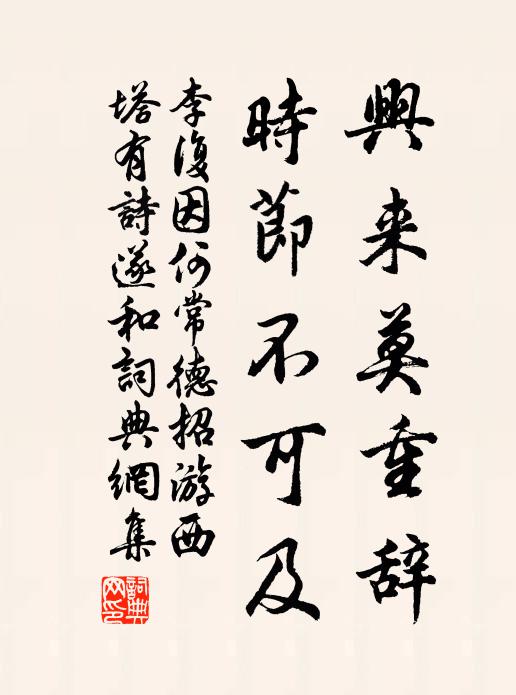 興来莫重辞
時節不可及
李復因何常德招游西
塔有詩遂和詞典網集
詞典網印